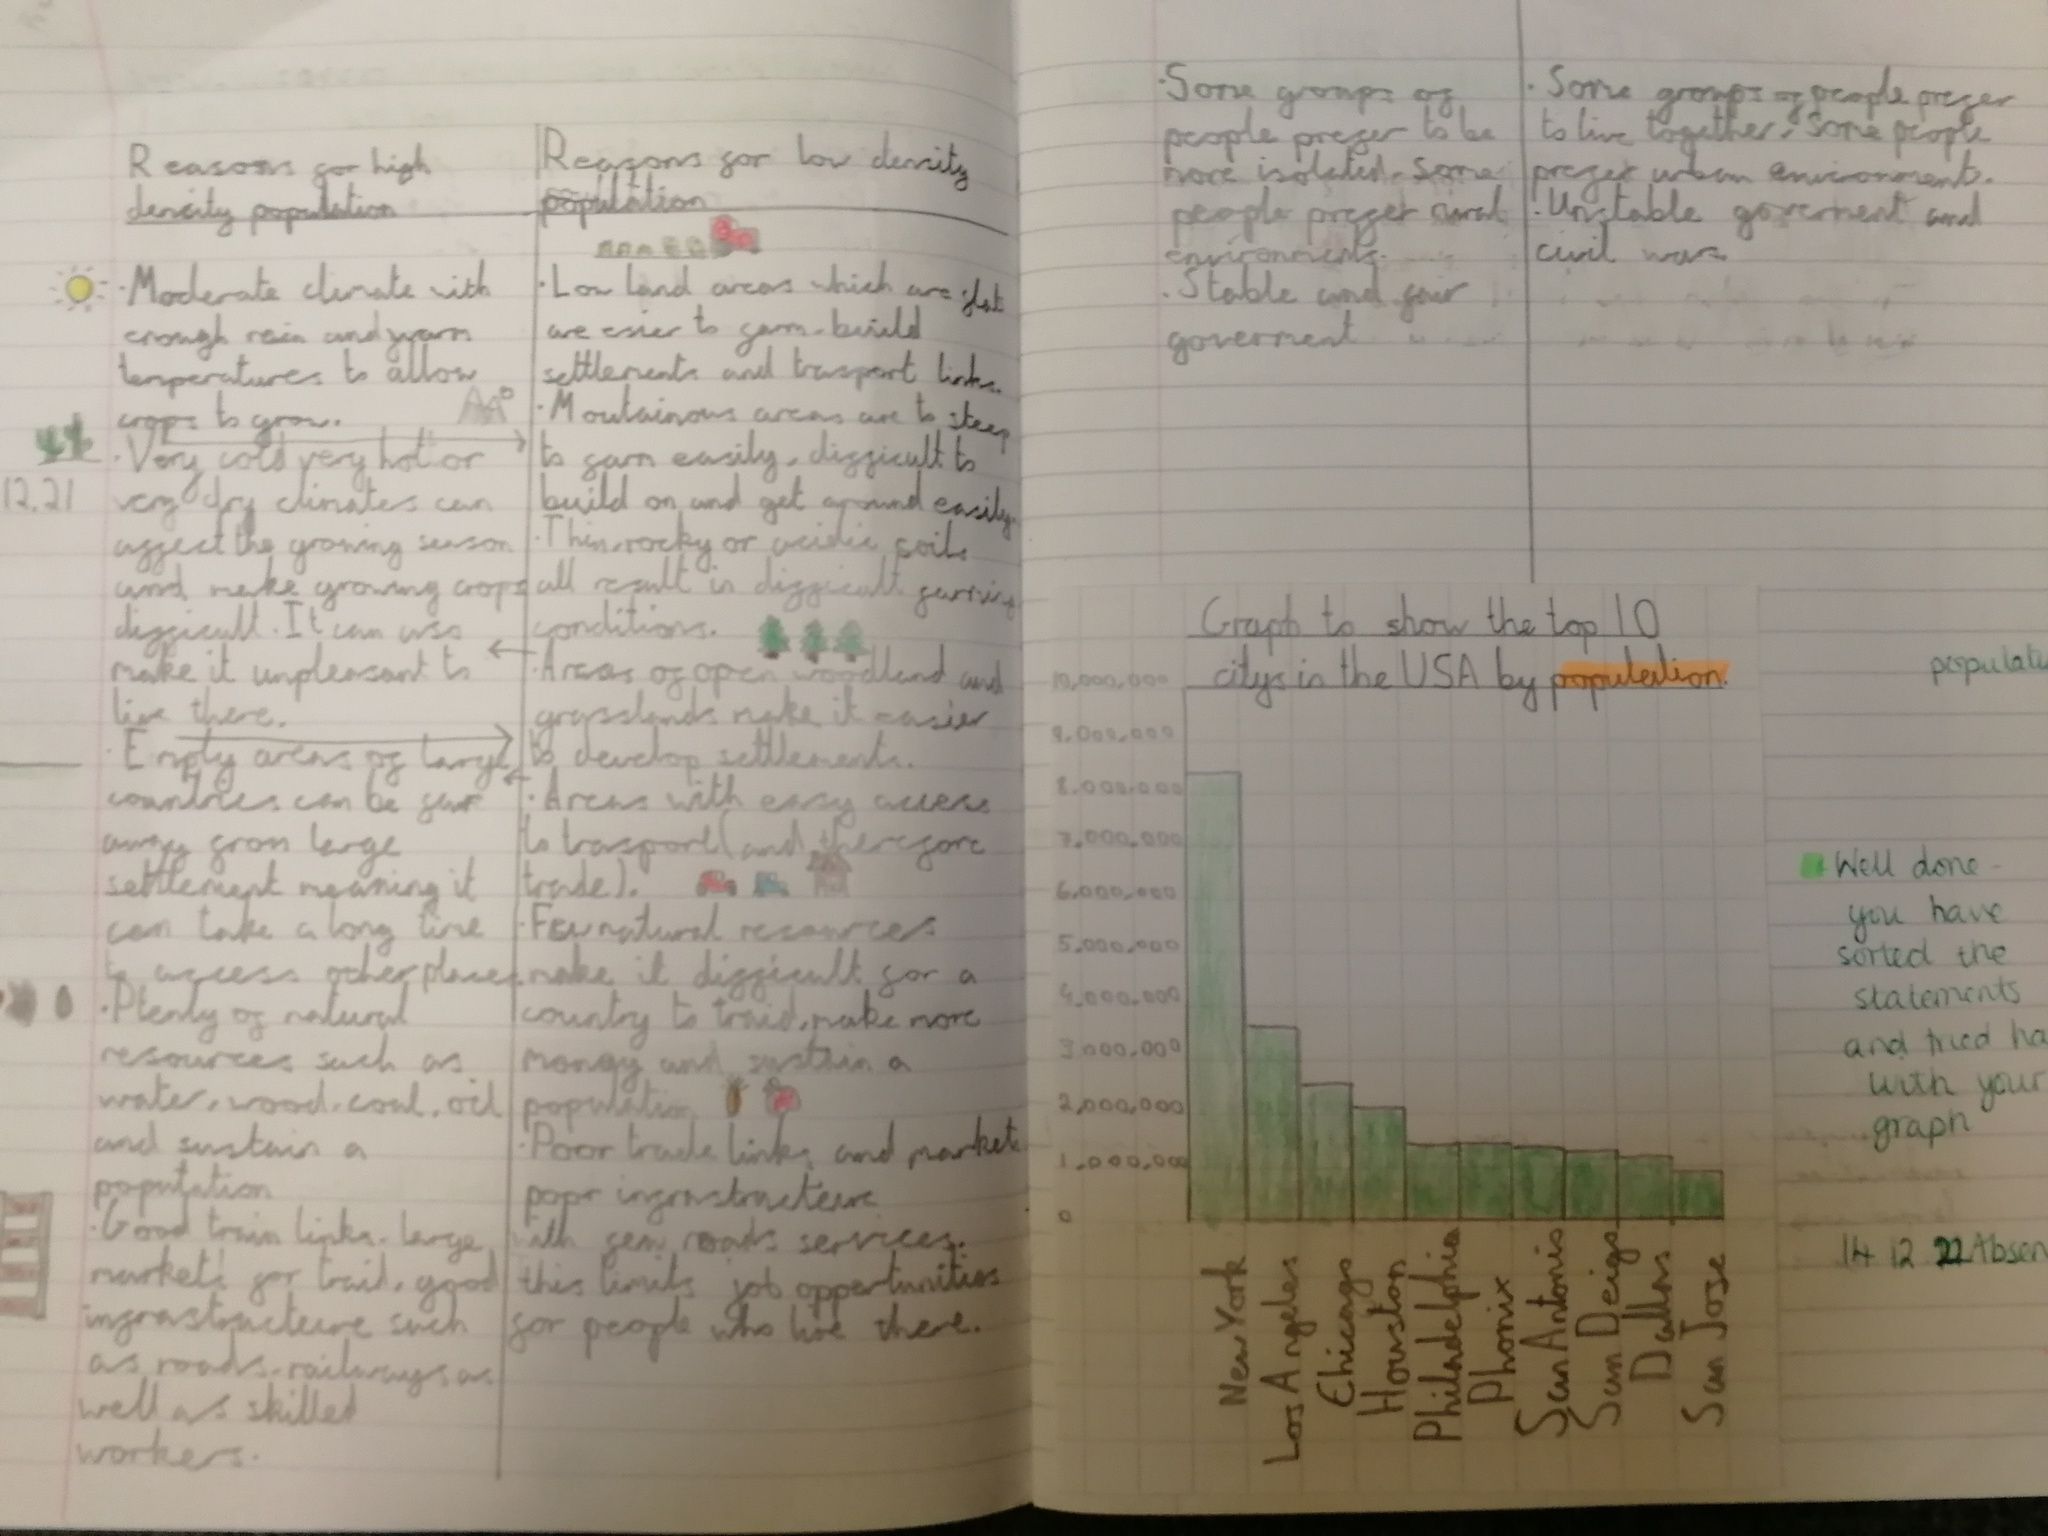 Reasons for high
density population
Moderate climate with
enough rain and warm
temperatures to allow
crops to grow.
Very cold very hot or
very dry climates can
affect the growing season
and make growing crops
difficult. It can also
make it unpleasant to
live there.
Empty areas of large
countries can be far
away from large
settlement meaning it
can take a long time
to access other places
Plenty of natural
resources such as
water, wood, coal, oil
and sustain a
population
Good train links, large
markets for traid, good
infrastructeure such
as roads, railways as
well as skilled
workers.
12.21
Reasons for low density
population
Low land areas which are flat
are esier to farm, build
settlements and trasport links.
Moutainous areas are to steep
to farm easily, difficult to
build on and get around easily.
Thin, rocky or acidic soils
all result in difficult farming
conditions.
Areas of open woodland and
grasslands make it easier
to develop settlements.
Areas with easy access
to trasport (and therefore
trade).
Few natural resources
make it difficult for a
country to traid, make more
money and sustain a
population
Poor trade links and markets
poor infrastructeure
with few roads services.
this limits job opportunities
for people who live there.
Some groups of
people prefer to be
more isolated. Some
people prefer rural
environments.
Stable and fair
goverment
Some groups of people prefer
to live together. Some people
prefer urban environments.
Unstable goverment and
civil wars
Graph to show the top 10
citys in the USA by population.
10,000,000
9,000,000
8,000,000
7,000,000
6,000,000
5,000,000
4,000,000
3,000,000
2,000,000
1,000,000
0
New York
Los Angeles
Chicago
Houston
Philadelphia
Phonix
San Antonio
San Deigo
Dallas
San Jose
populati
Well done -
you have
sorted the
statements
and tried ha
with your
graph
14 12 22 Absen